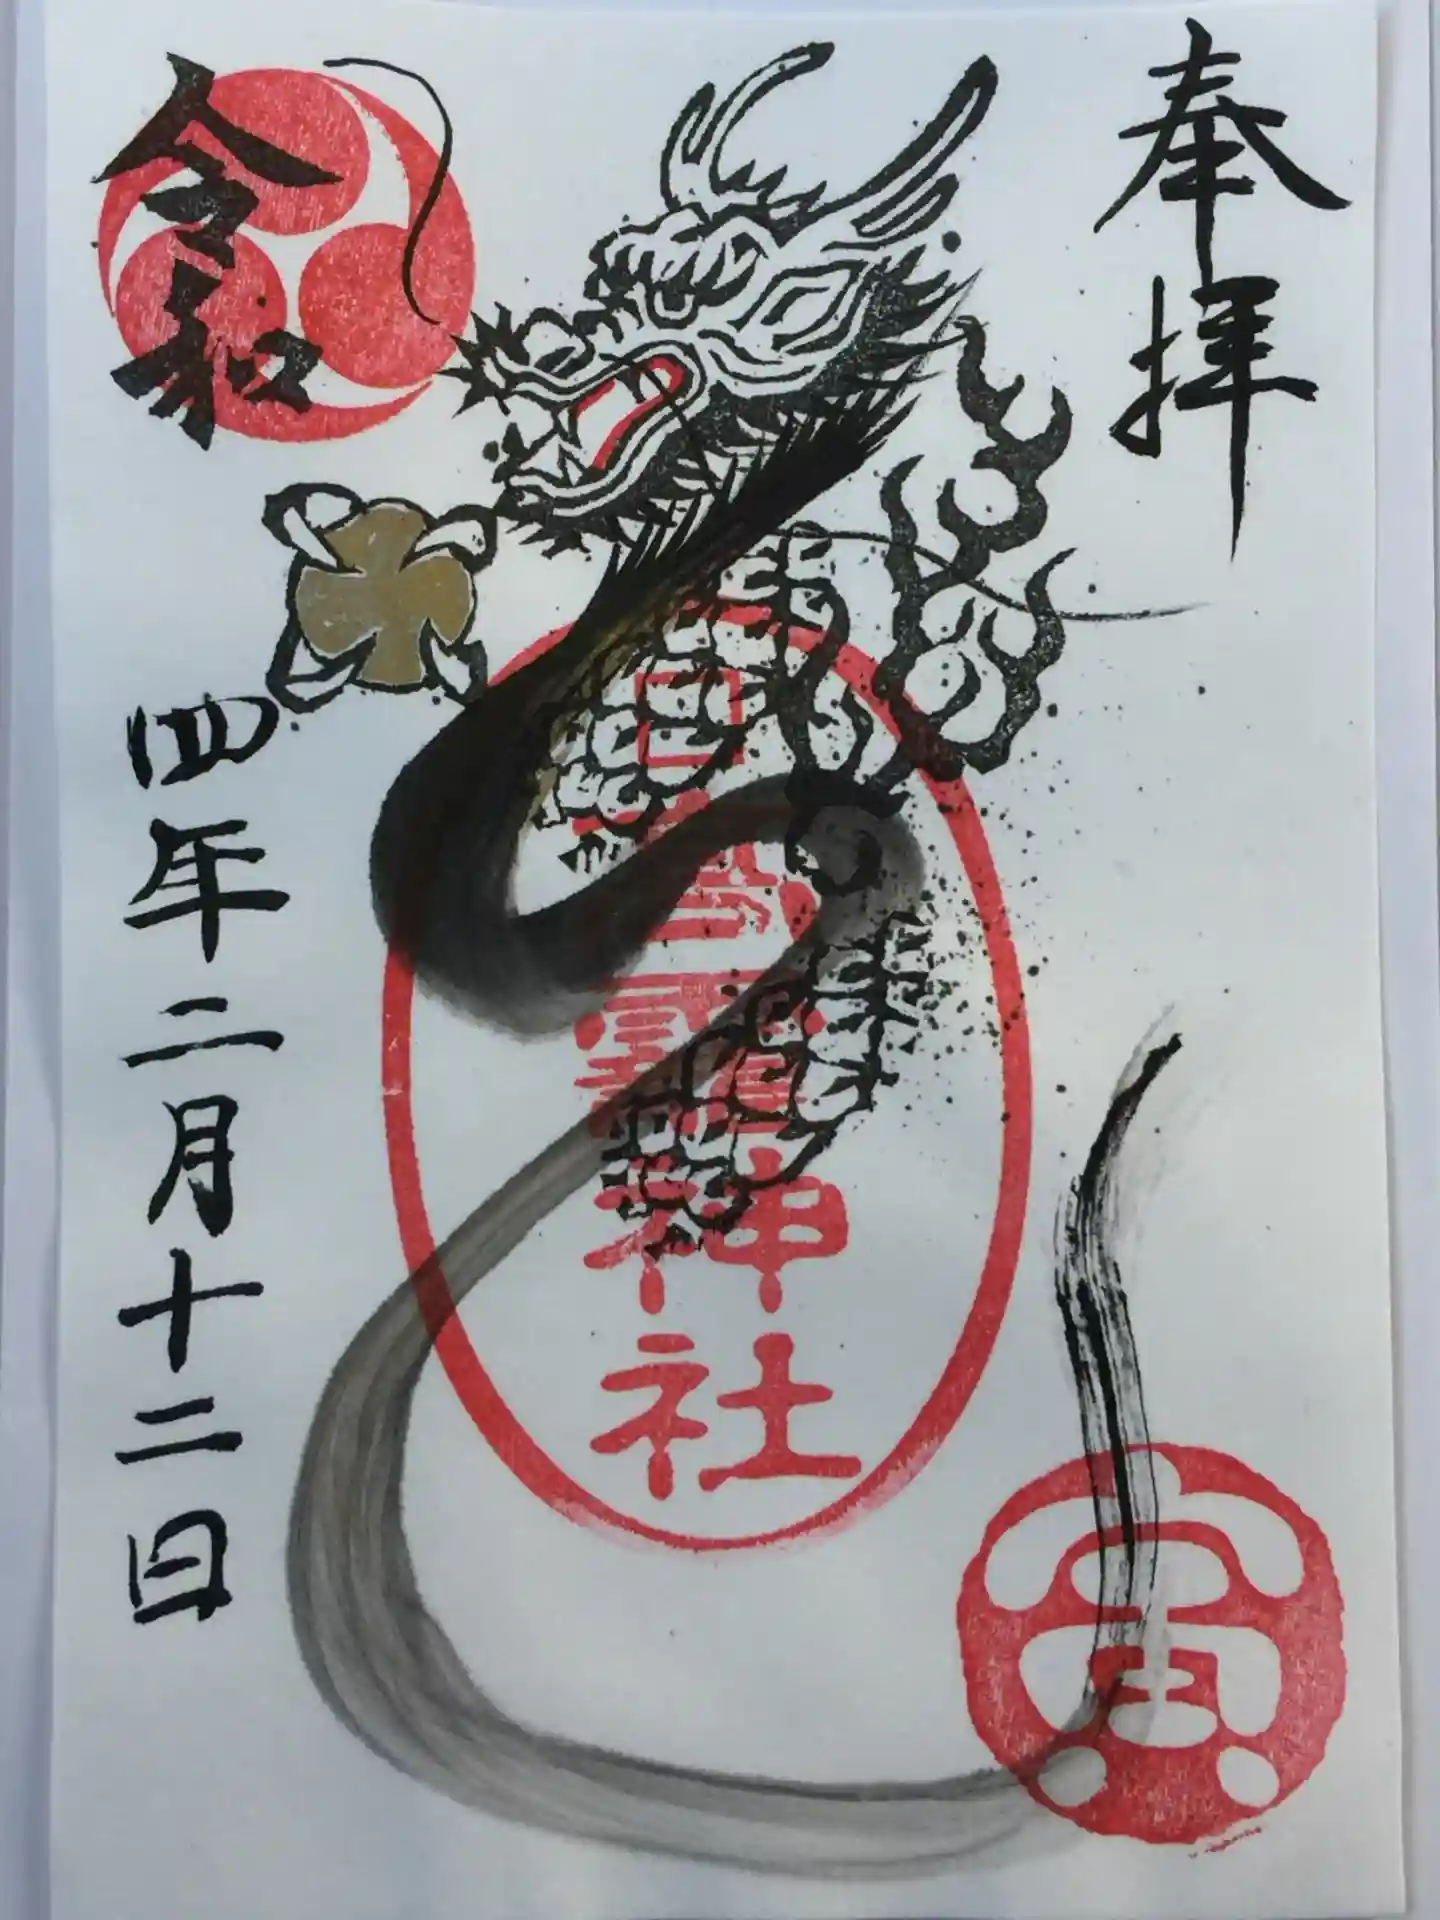 奉拝
神社
寅
令和四年二月十二日